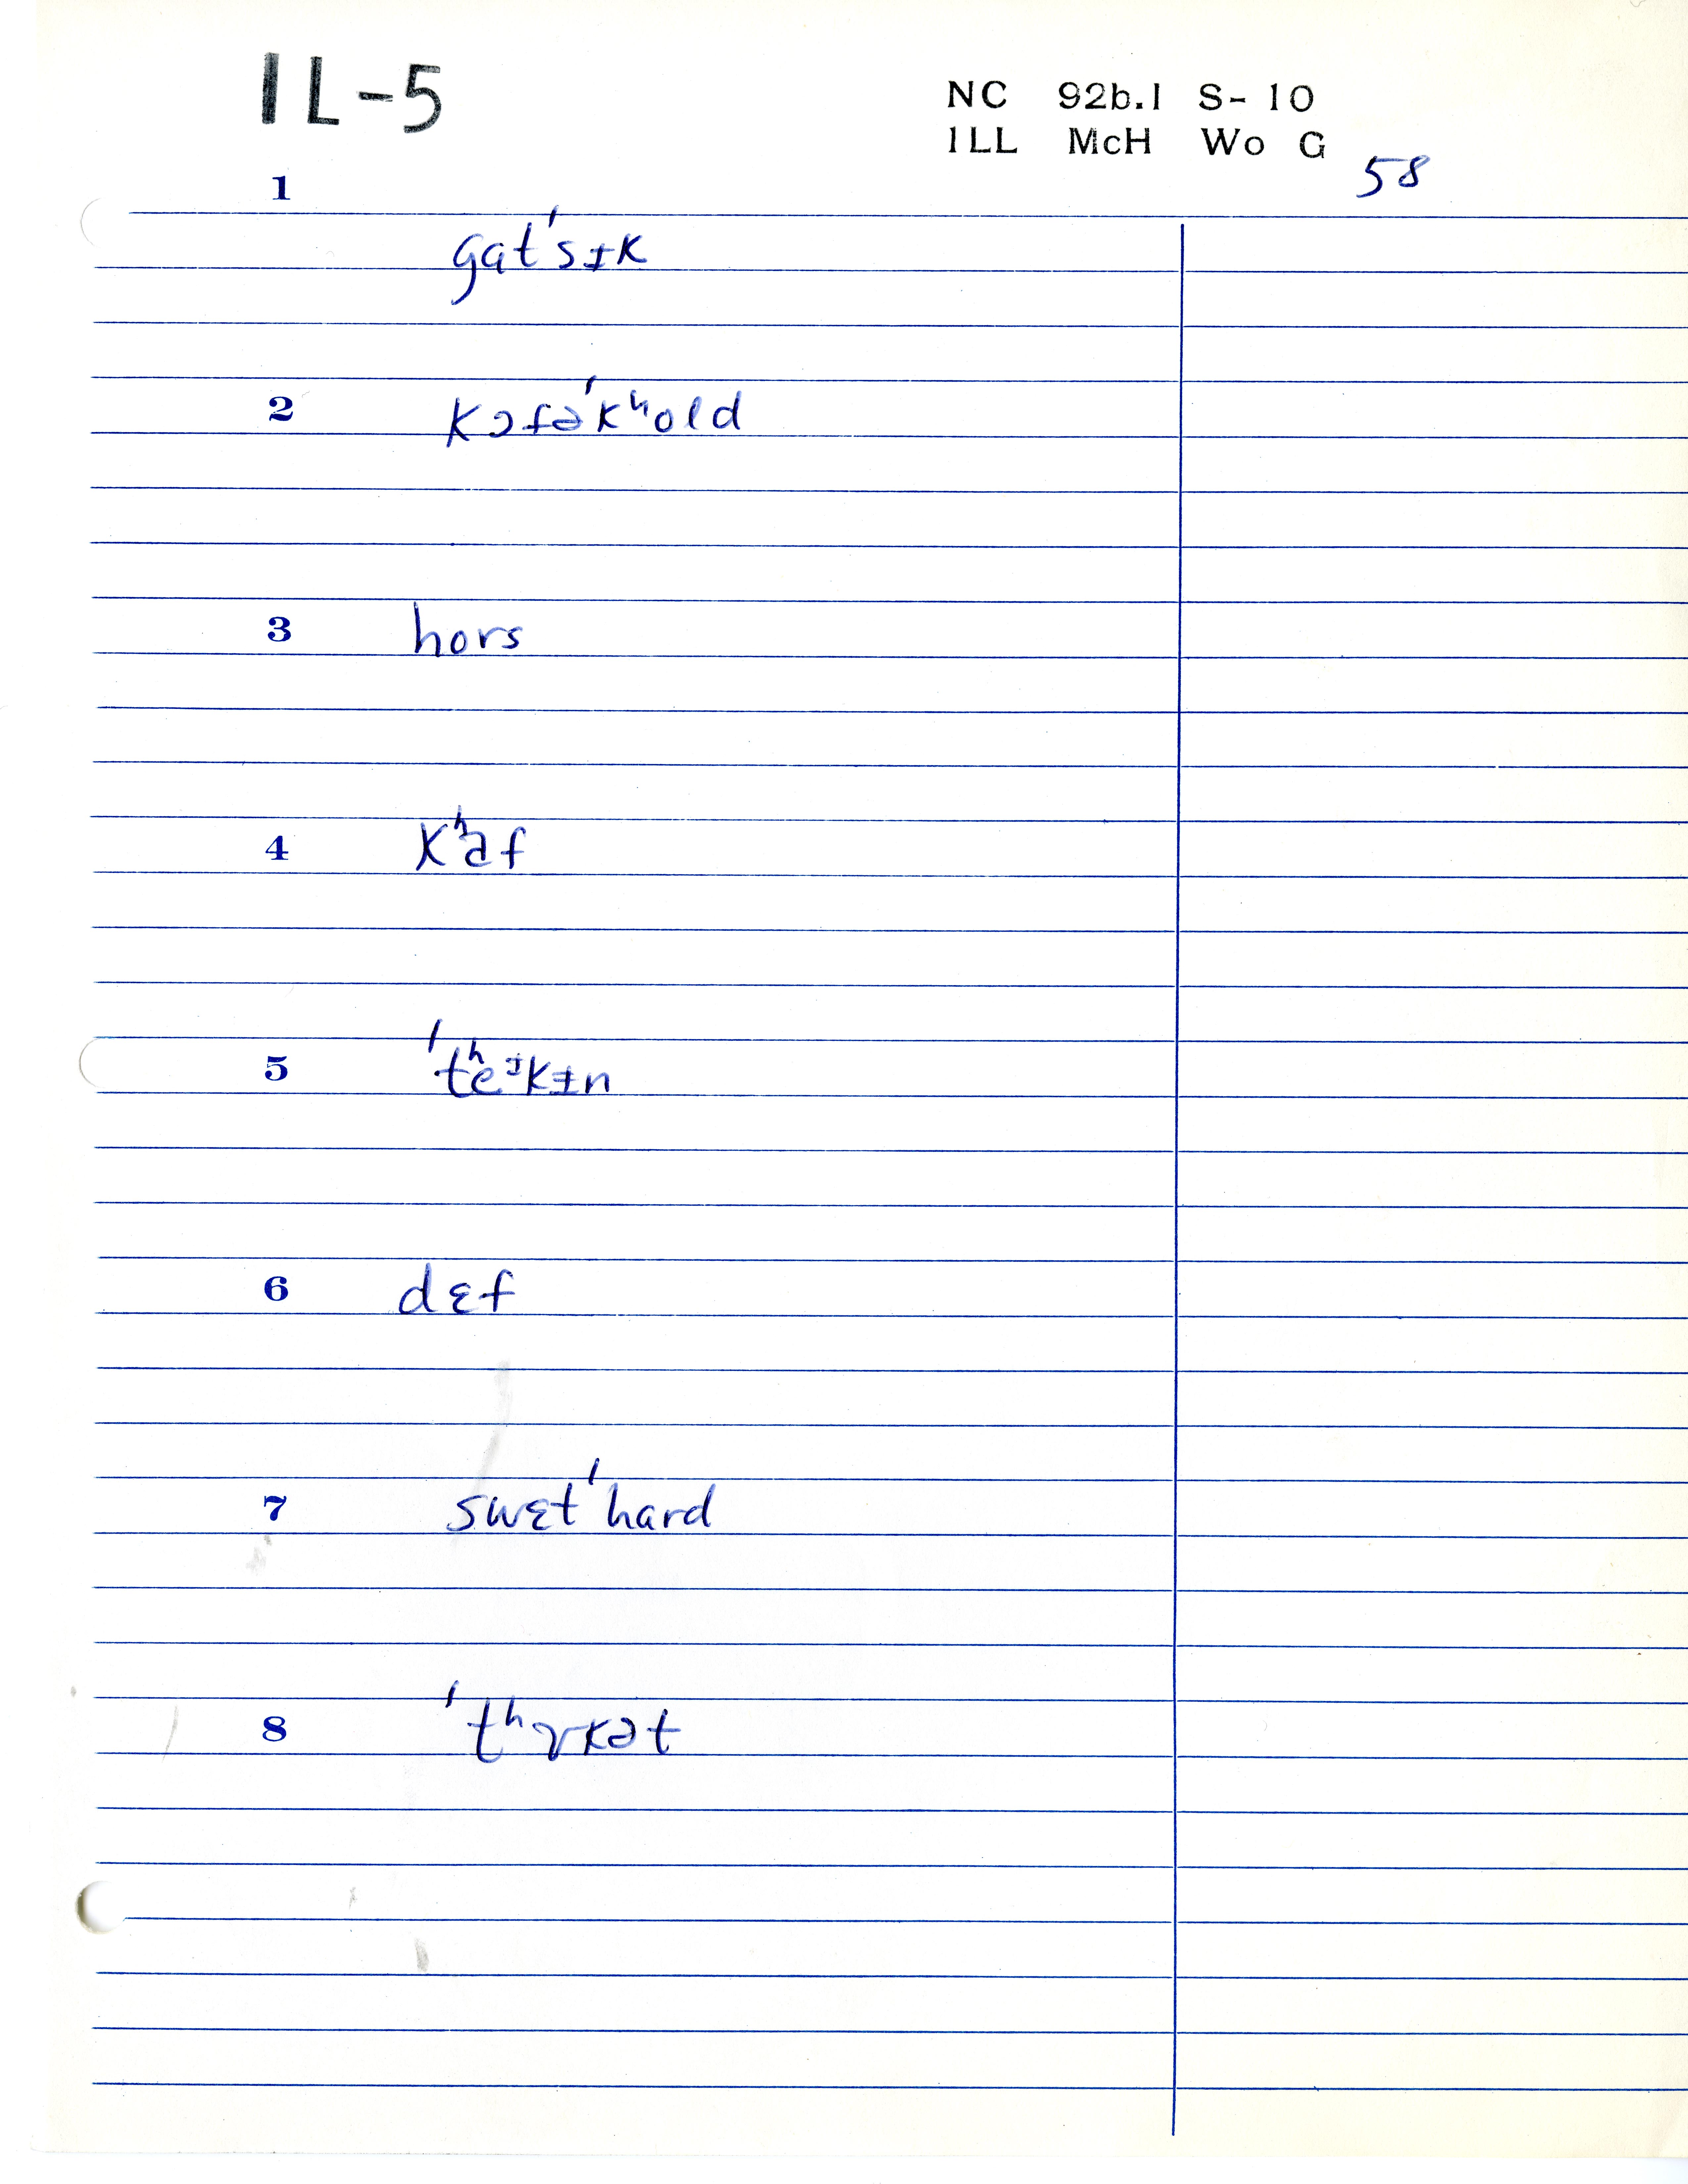 IL-5
NC 92b.1 S-10
ILL McH Wo G
58
1 gatˈsɪk
2 kɔfəˈkʰold
3 hors
4 kʰɔf
5 ˈtʰeᶤkɨn
6 dɛf
7 swɛtˈhard
8 ˈtʰɤkət